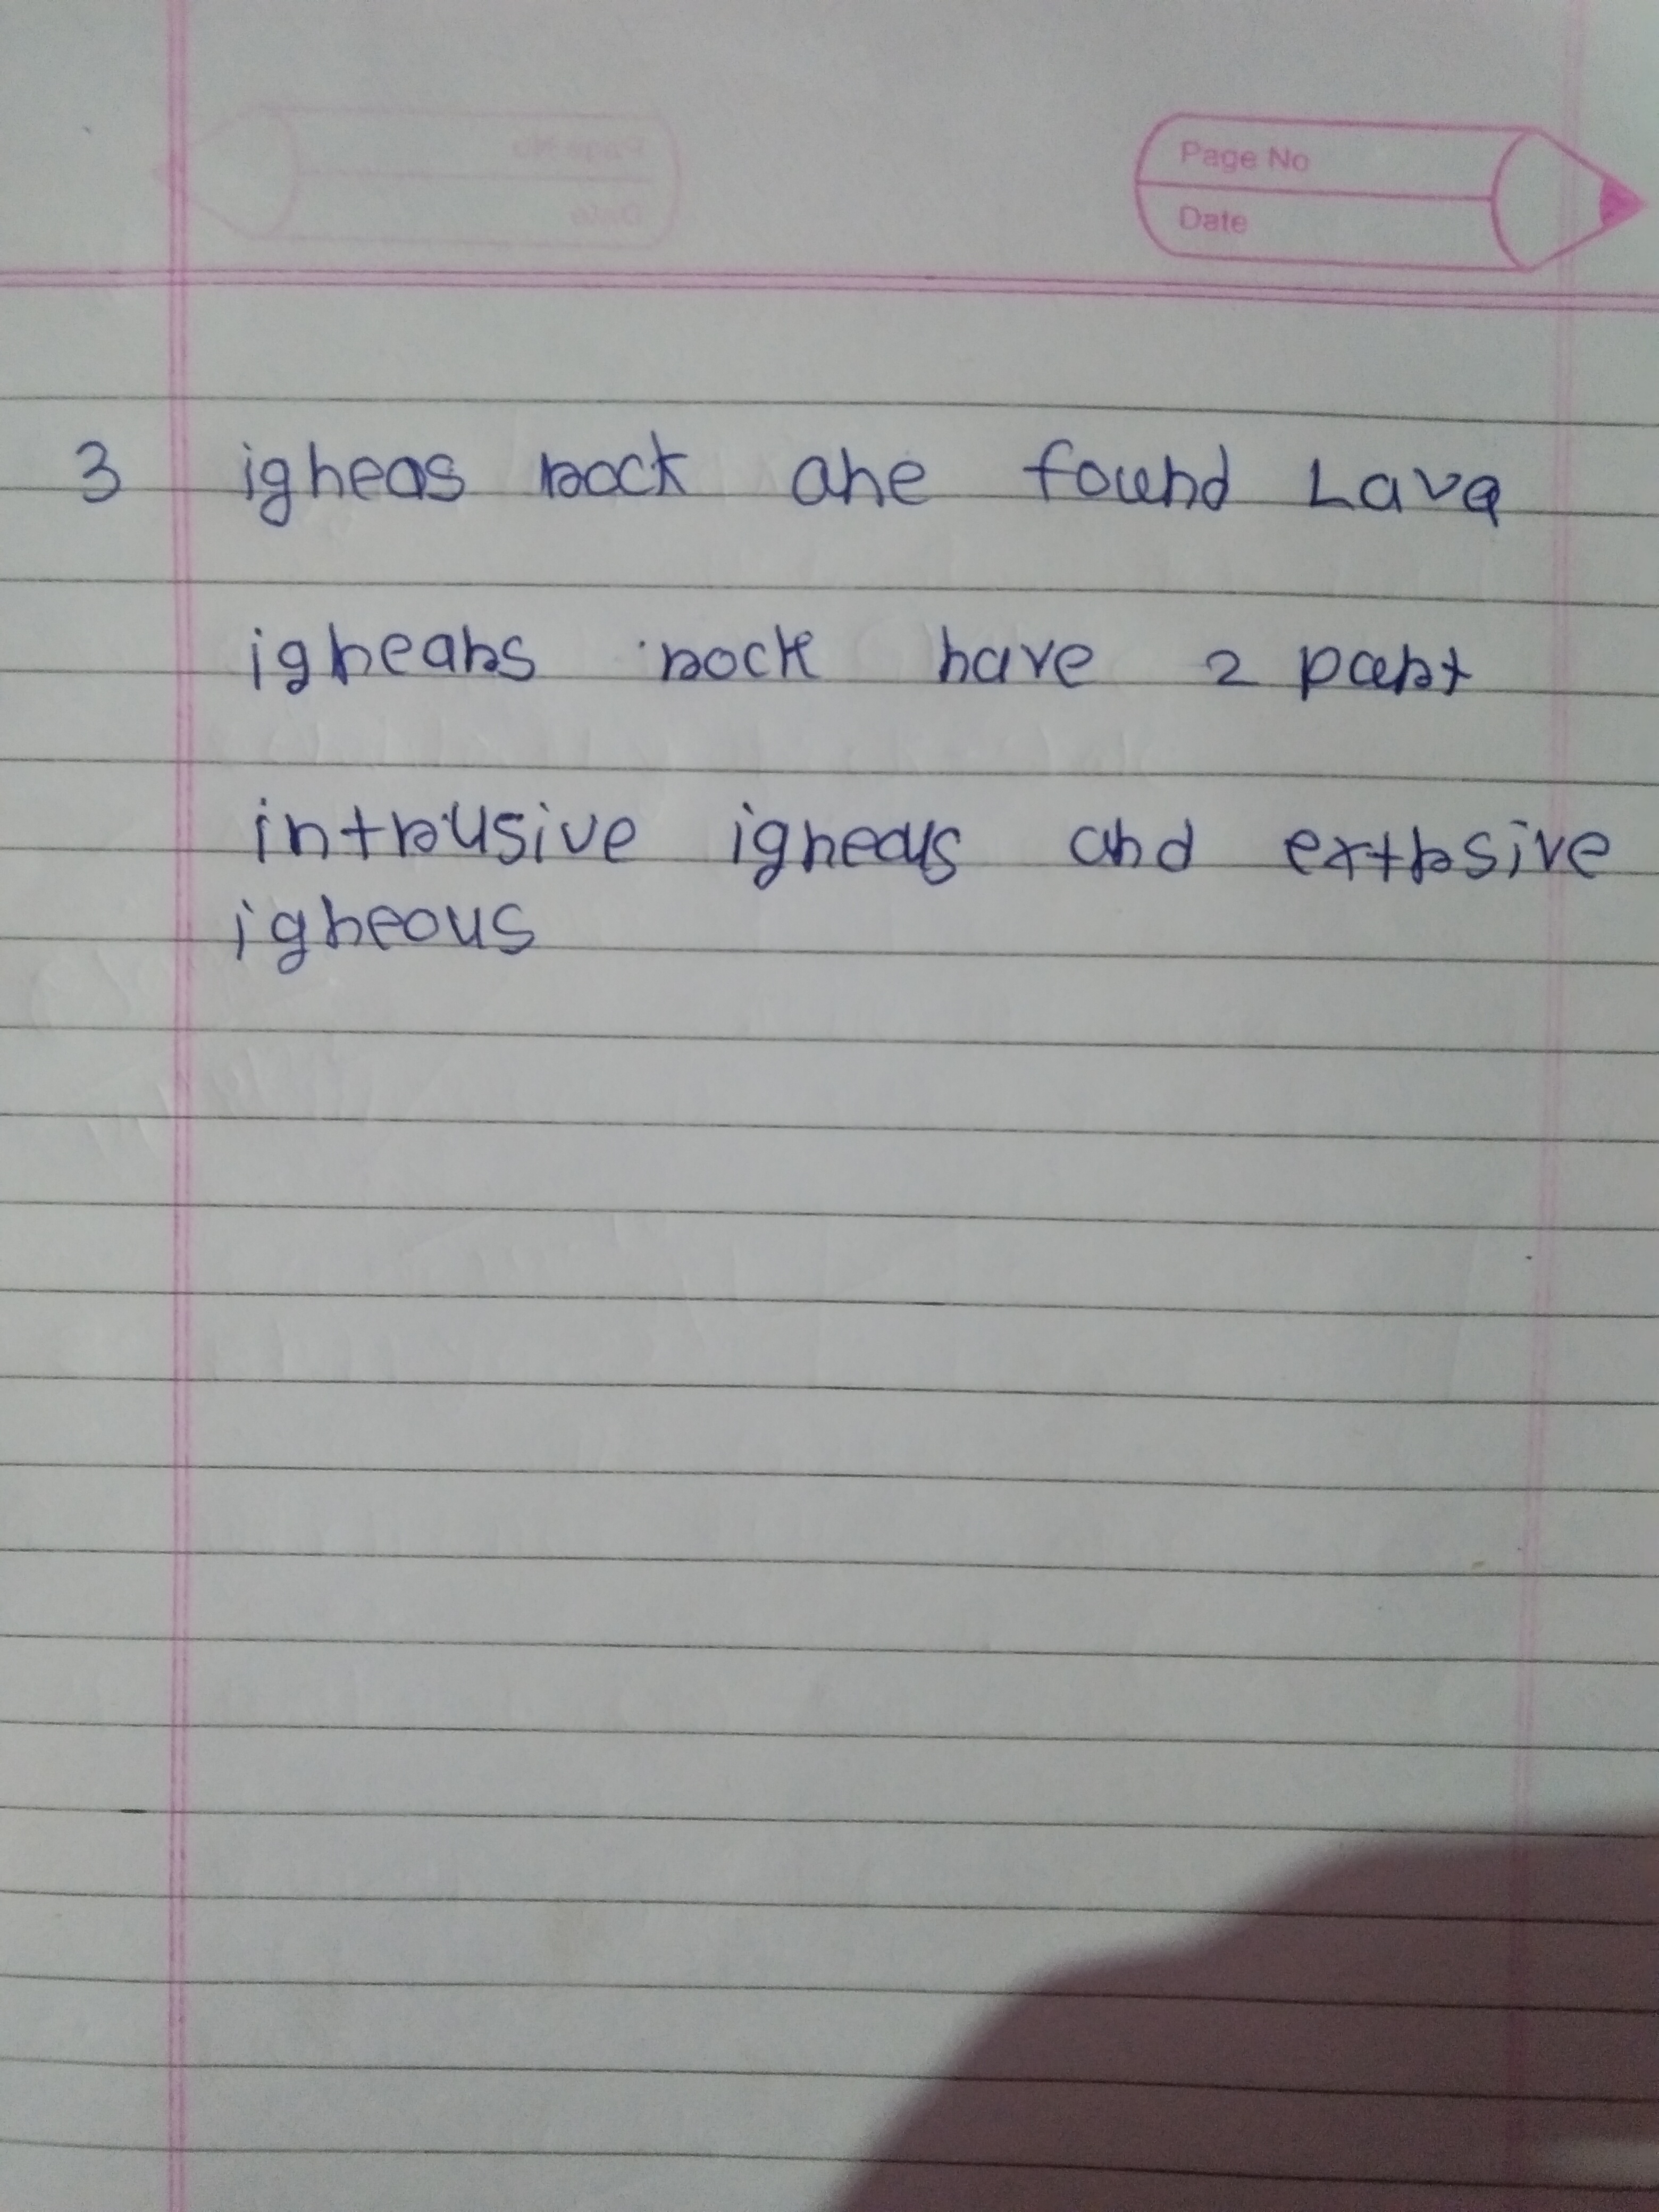 Page No
Date
3 igneas rock are found Lava
igneans rock have 2 part
intrusive igneaus and extrsive
igneous